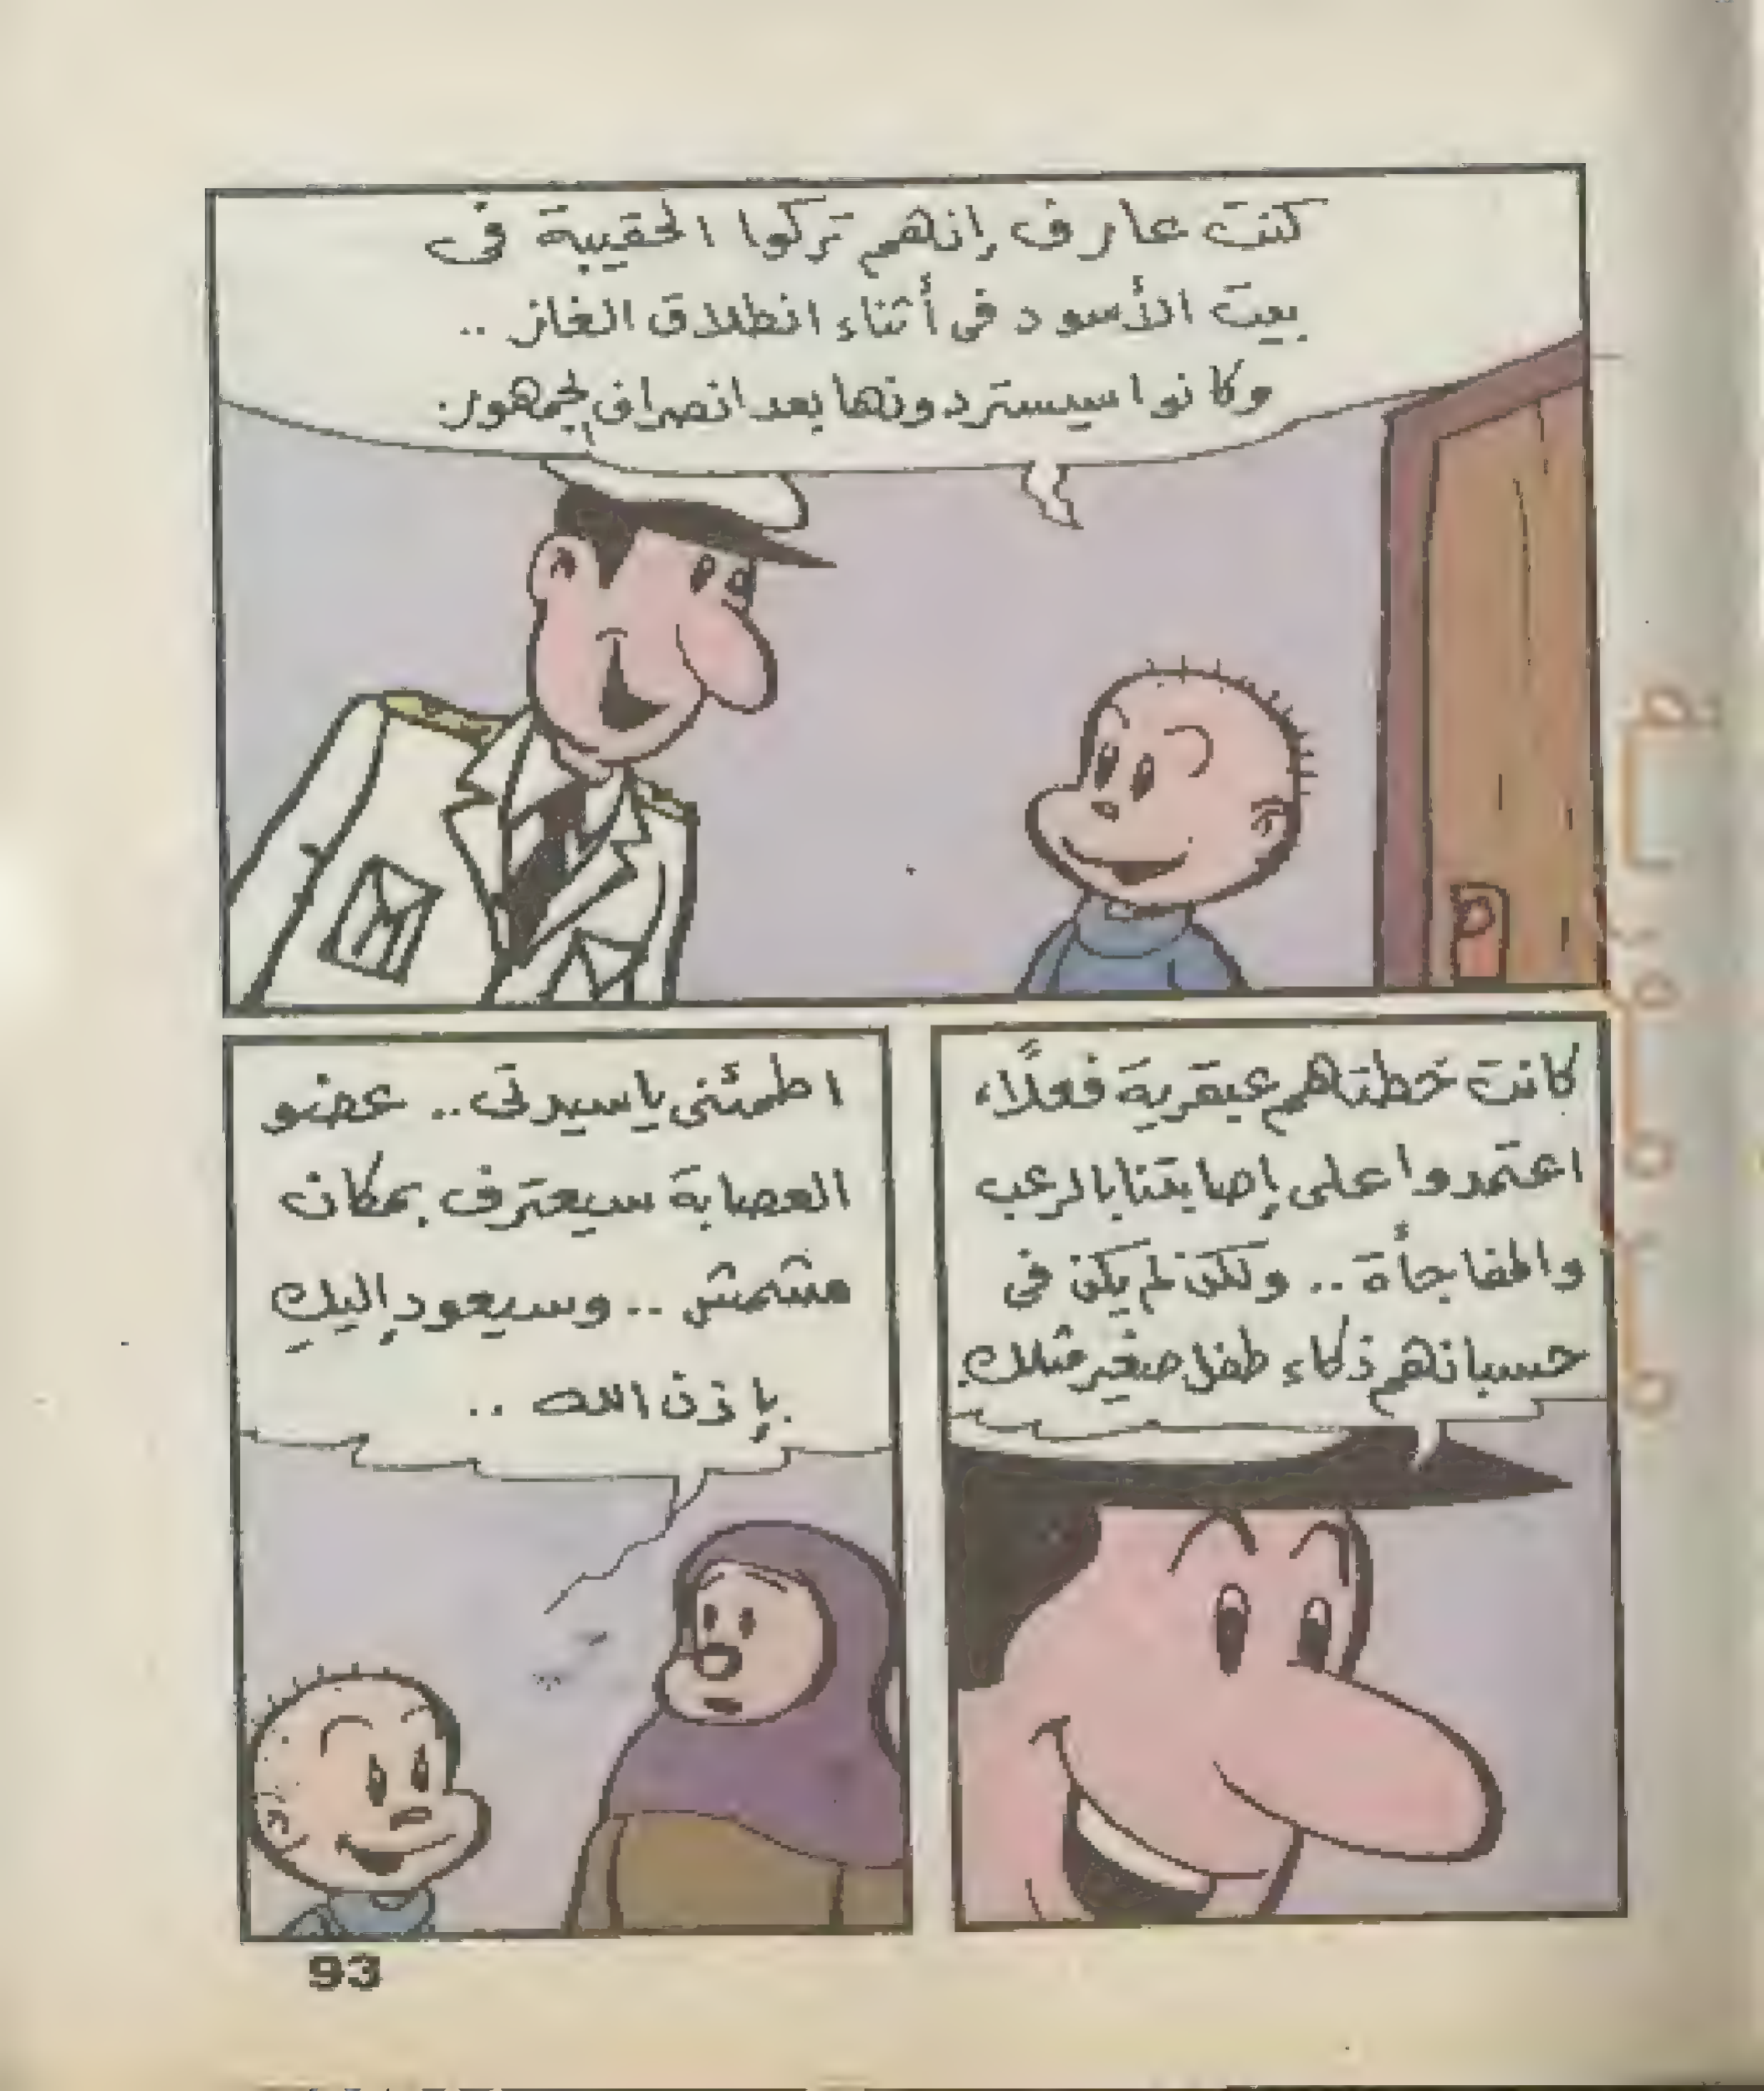 كنت عارف إنهم تركوا الحقيبة فى
بيت الأسود فى أثناء انطلاق الغاز ..
وكانوا سيستردونها بعد انصراف الجمهور.
كانت خطتهم عبقرية فعلاً،
اعتمدوا على إصابتنا بالرعب
والمفاجأة .. ولكن لم يكن فى
حسبانهم ذكاء طفل صغير مثلك.
اطمئنى يا سيدتى .. عضو
العصابة سيعترف بمكان
مشمش .. وسيعود إليك
بإذن الله ..
93